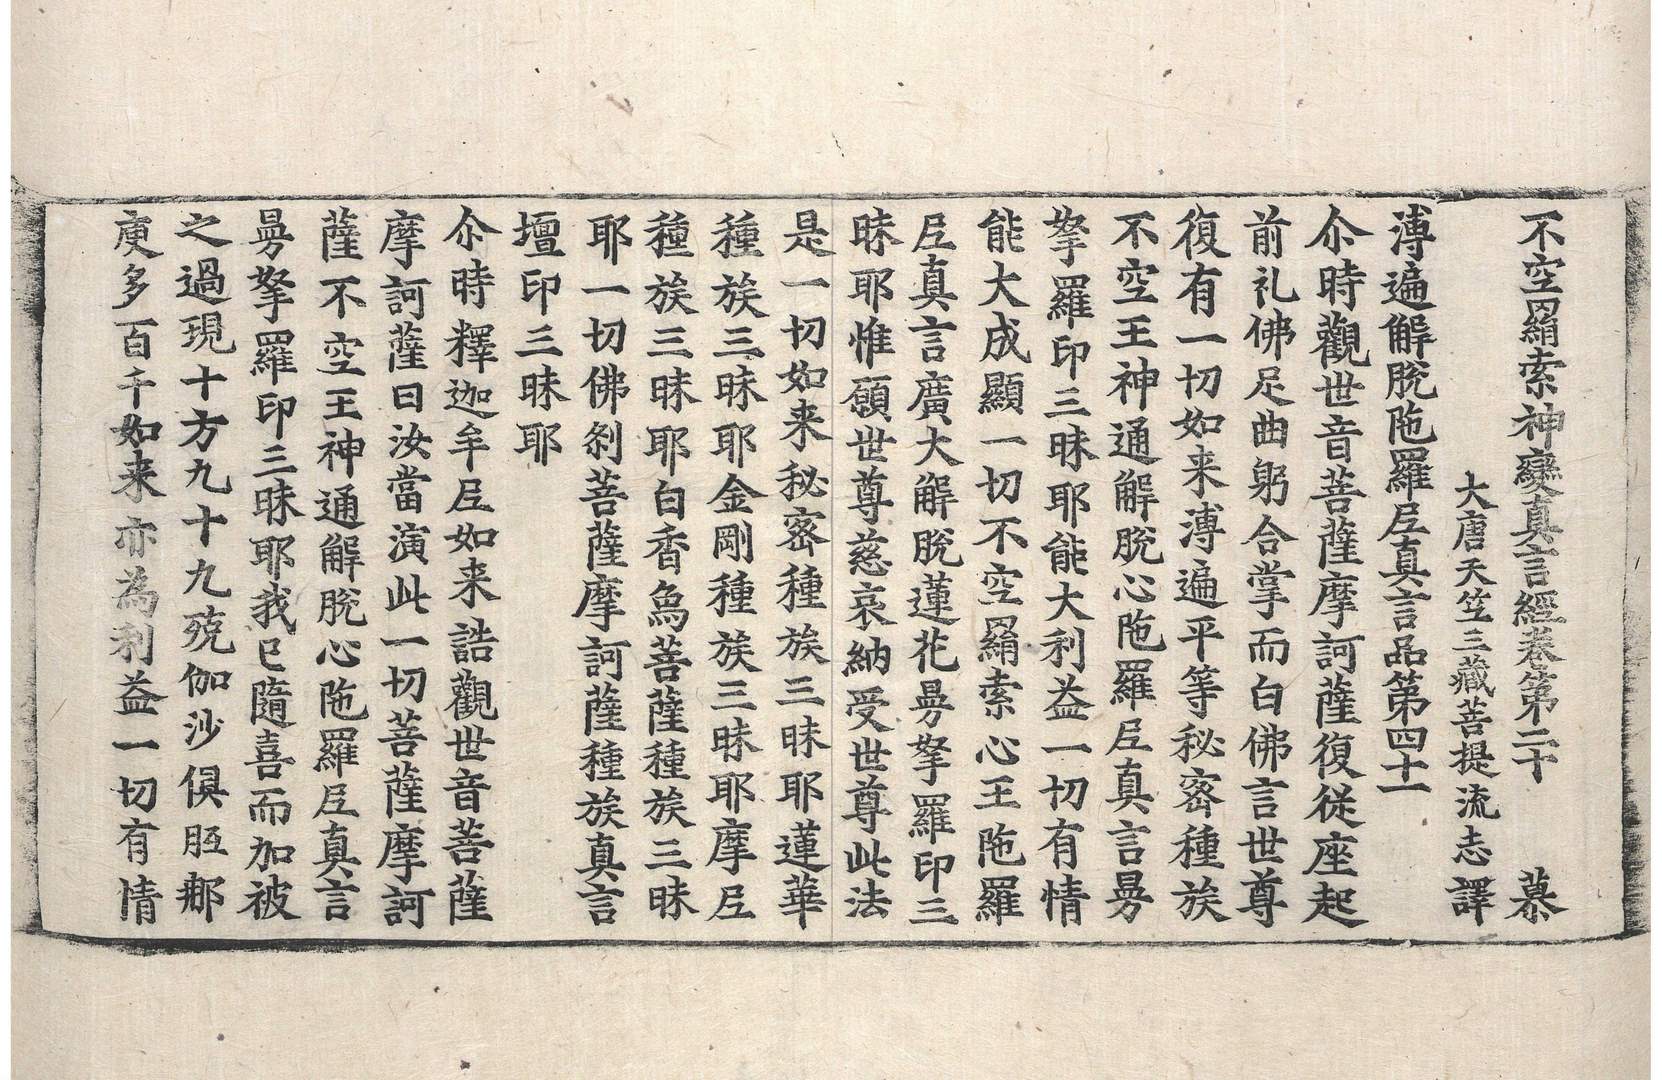 不空羂索神變真言經卷第二十　慕
大唐天竺三藏菩提流志　譯
溥遍解脫陁羅尼真言品第四十一
尒時觀世音菩薩摩訶薩復從座起
前礼佛足曲躬合掌而白佛言世尊
復有一切如来溥遍平等秘密種族
不空王神通解脫心陁羅尼真言曼
拏羅印三昧耶能大利益一切有情
能大成顯一切不空羂索心王陁羅
尼真言廣大解脫蓮花曼拏羅印三
昧耶惟願世尊慈哀納受世尊此法
是一切如来秘密種族三昧耶蓮華
種族三昧耶金剛種族三昧耶摩尼
種族三昧耶白香烏菩薩種族三昧
耶一切佛刹菩薩摩訶薩種族真言
壇印三昧耶
尒時釋迦牟尼如来誥觀世音菩薩
摩訶薩曰汝當演此一切菩薩摩訶
薩不空王神通解脫心陁羅尼真言
曼拏羅印三昧耶我已隨喜而加被
之過現十方九十九殑伽沙俱胝𨚗
庾多百千如来亦為利益一切有情